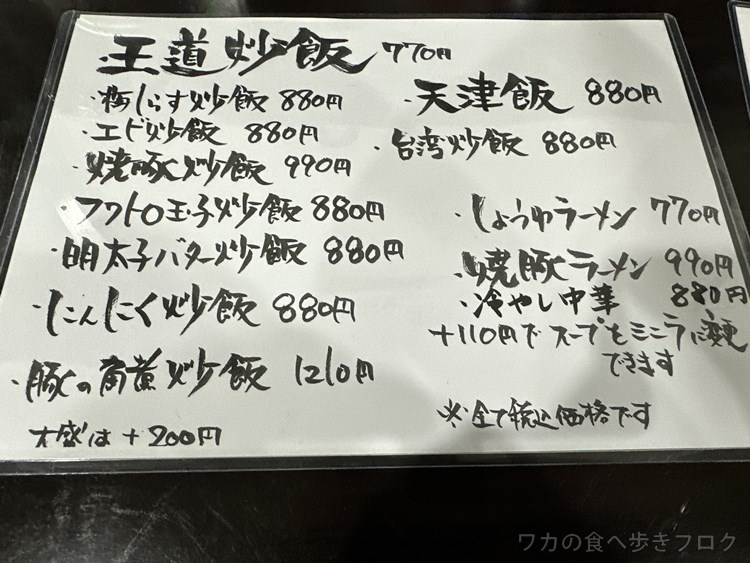 ・王道炒飯 770円
・梅しらす炒飯 880円
・エビ炒飯 880円
・焼豚炒飯 990円
・フワトロ玉子炒飯 880円
・明太子バター炒飯 880円
・にんにく炒飯 880円
・豚の角煮炒飯 1210円
大盛は+200円
・天津飯 880円
・台湾炒飯 880円
・しょうゆラーメン 770円
・焼豚ラーメン 990円
・冷やし中華 880円
+110円でスープをミニラに変更
できます
※全て税込価格です
ワカの食べ歩きブログ